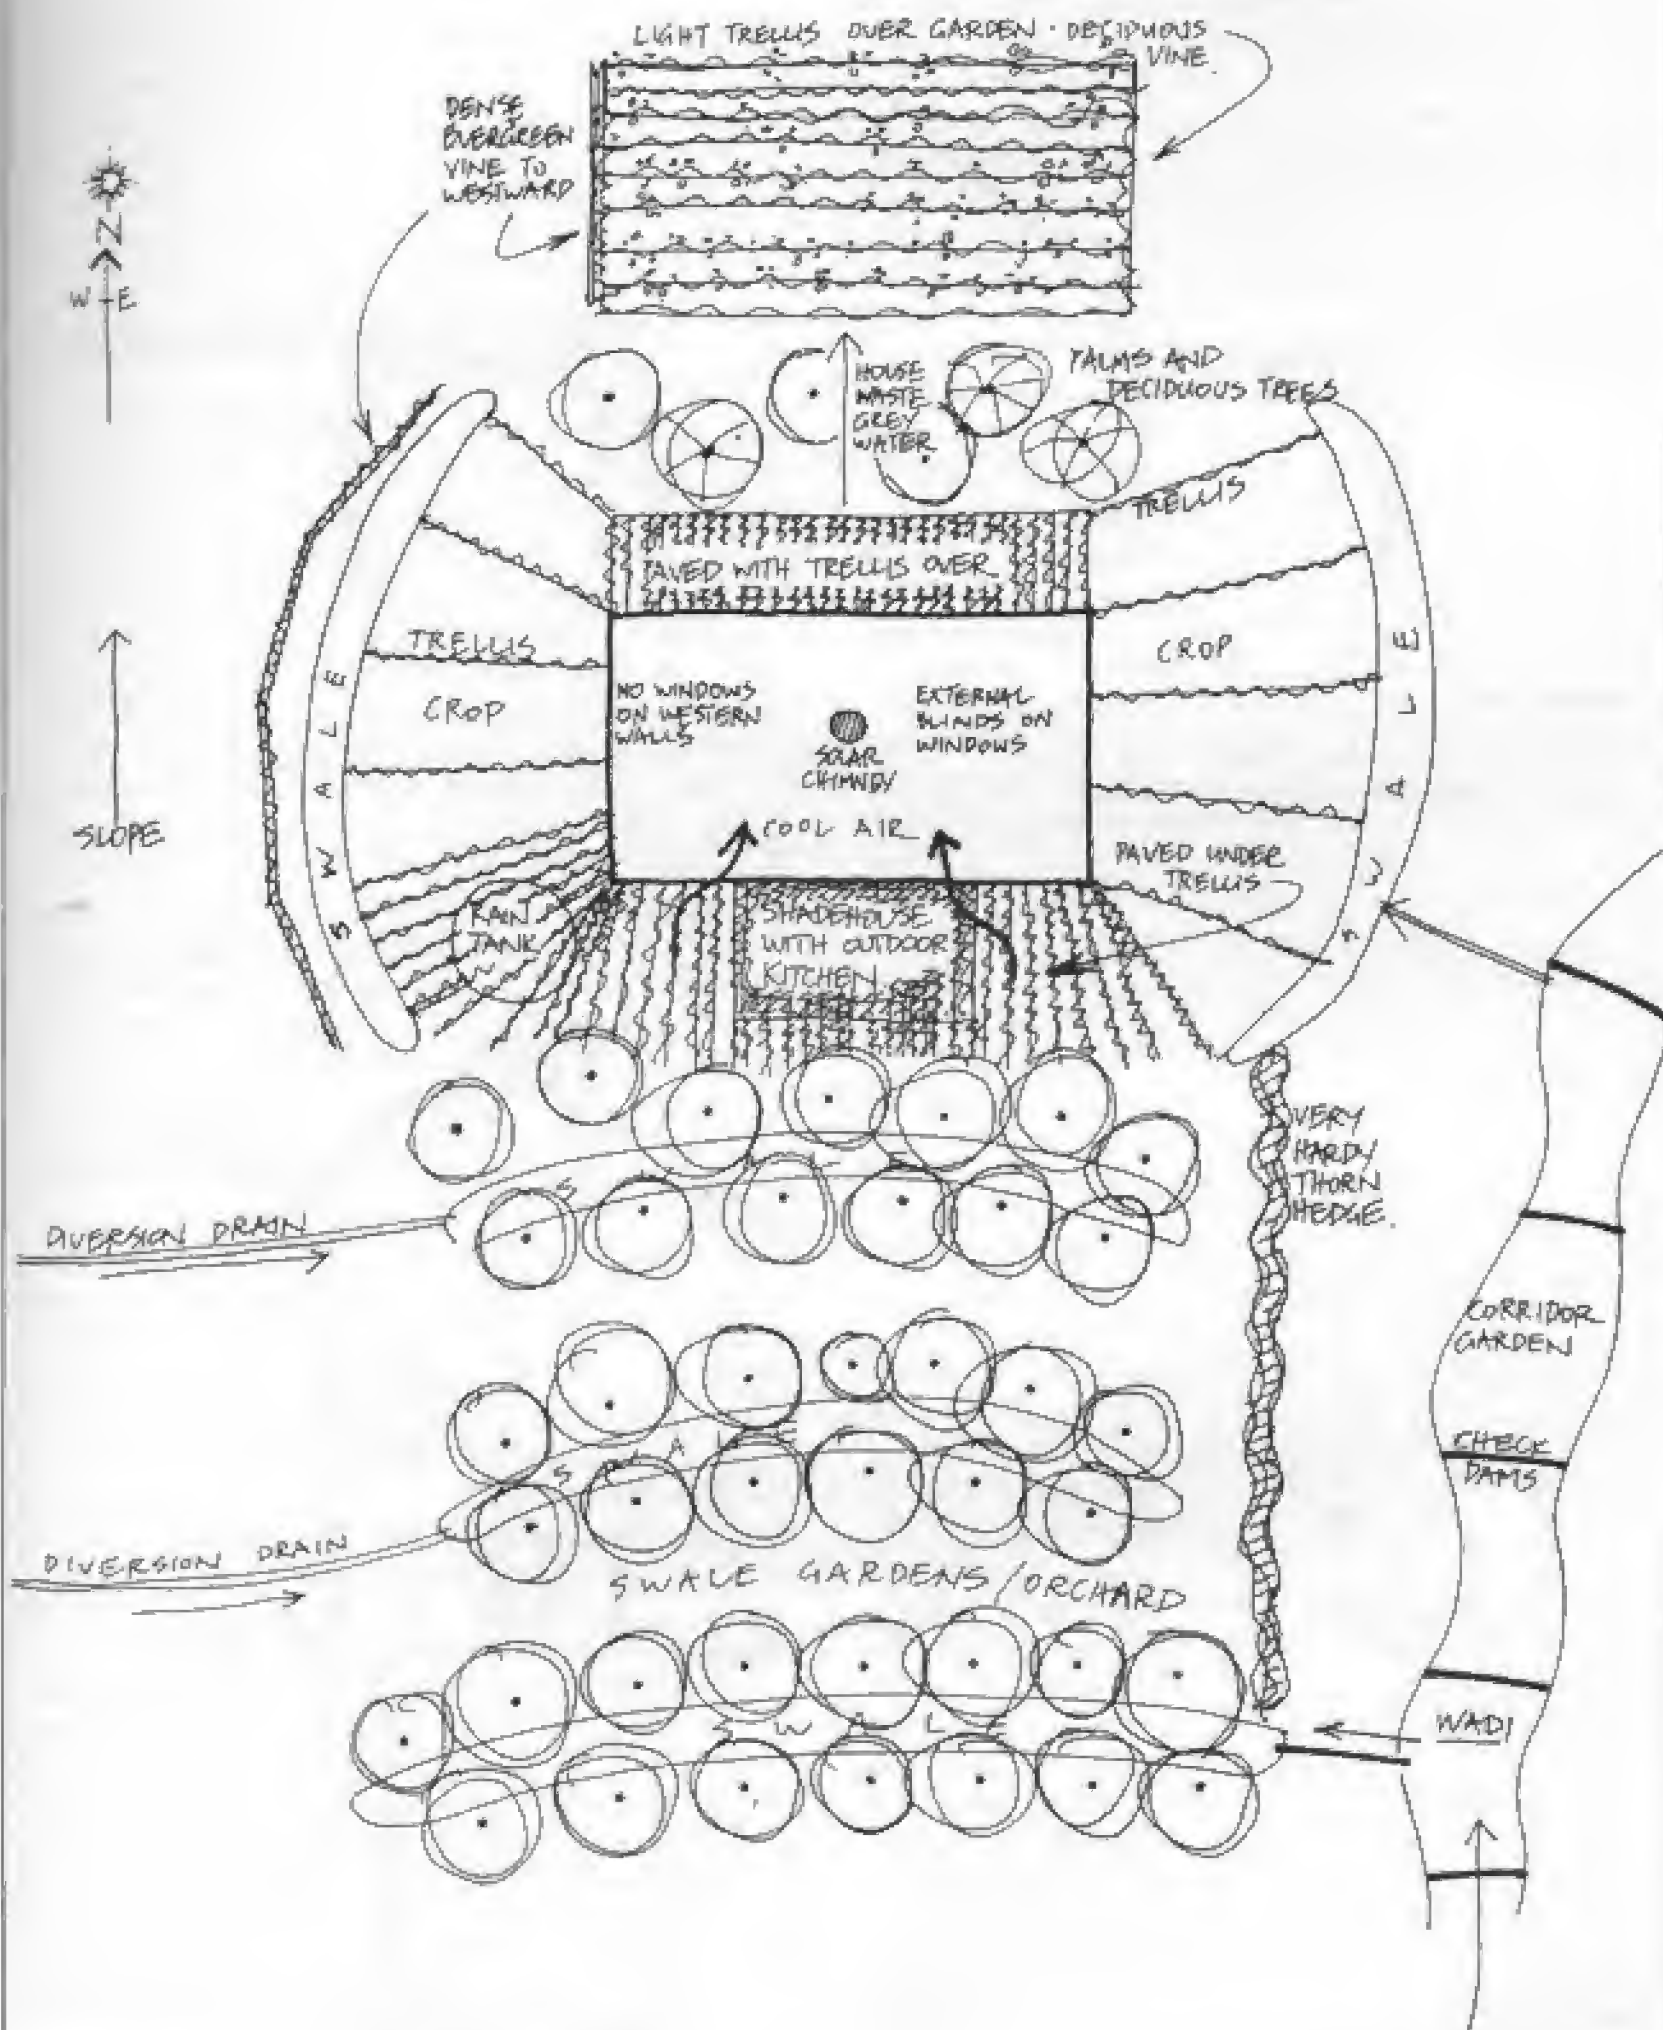 LIGHT TRELLIS OVER GARDEN · DECIDUOUS
VINE.
DENSE
EVERGREEN
VINE TO
WESTWARD
N
W E
PALMS AND
DECIDUOUS TREES
HOUSE
WASTE
GREY
WATER
TRELLIS
PAVED WITH TRELLIS OVER
TRELLIS
CROP
CROP
SWALE
SWALE
NO WINDOWS
ON WESTERN
WALLS
EXTERNAL
BLINDS ON
WINDOWS
SOLAR
CHIMNEY
COOL AIR
SLOPE
PAVED UNDER
TRELLIS
RAIN
TANK
SHADEHOUSE
WITH OUTDOOR
KITCHEN
VERY
HARDY
THORN
HEDGE.
DIVERSION DRAIN
CORRIDOR
GARDEN
SWALE
CHECK
DAMS
DIVERSION DRAIN
SWALE GARDENS/ORCHARD
SWALE
WADI